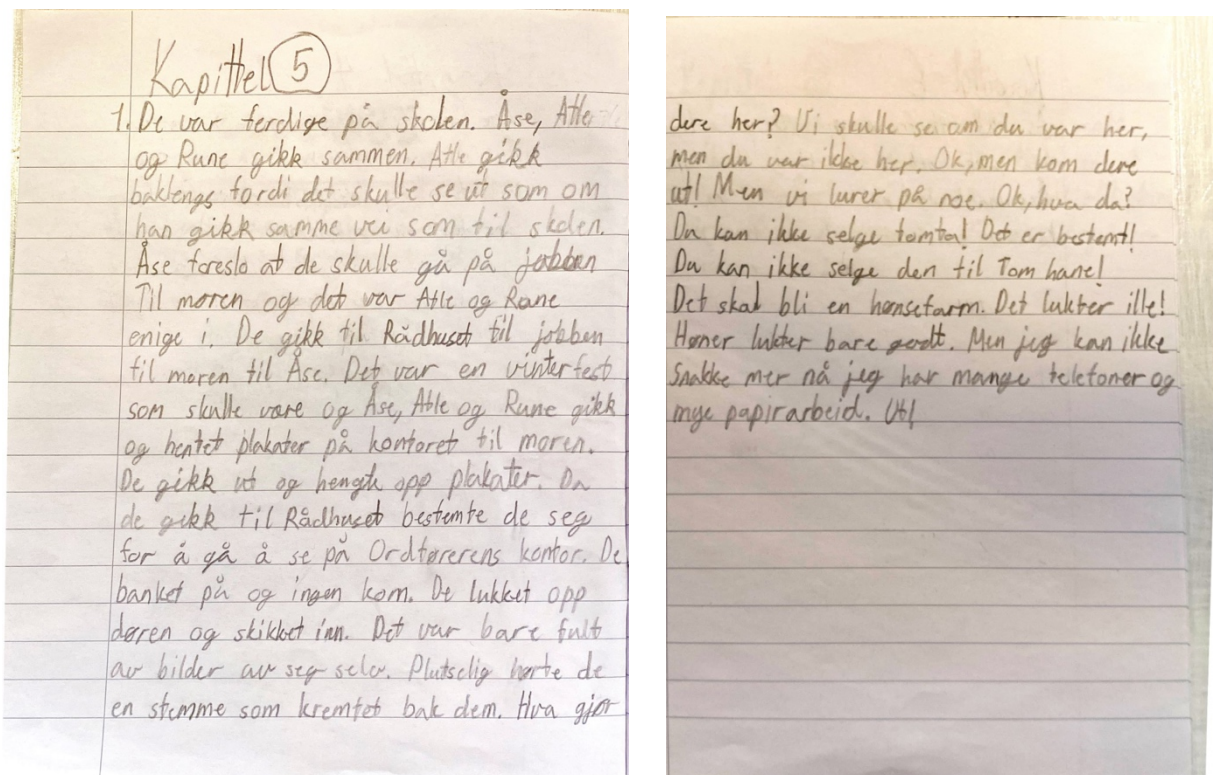 Kapittel 5
1. De var ferdige på skolen. Åse, Atle
og Rune gikk sammen. Atle gikk
baklengs fordi det skulle se ut som om
han gikk samme vei som til skolen.
Åse foreslo at de skulle gå på jobben
Til moren og det var Atle og Rune
enige i. De gikk til Rådhuset til jobben
til moren til Åse. Det var en vinterfest
som skulle være og Åse, Atle og Rune gikk
og hentet plakater på kontoret til moren.
De gikk ut og hengte opp plakater. Da
de gikk til Rådhuset bestemte de seg
for å gå å se på Ordførerens kontor. De
banket på og ingen kom. De lukket opp
døren og skikket inn. Det var bare fult
av bilder av seg selv. Plutselig hørte de
en stemme som kremtet bak dem. Hva gjør
dere her? Vi skulle se om du var her,
men du var ikke her. Ok, men kom dere
ut! Men vi lurer på noe. Ok, hva da?
Du kan ikke selge tomta! Det er bestemt!
Du kan ikke selge den til Tom hane!
Det skal bli en hønsefarm. Det lukter ille!
Høner lukter bare godt. Men jeg kan ikke
Snakke mer nå jeg har mange telefoner og
mye papirarbeid. Ut!